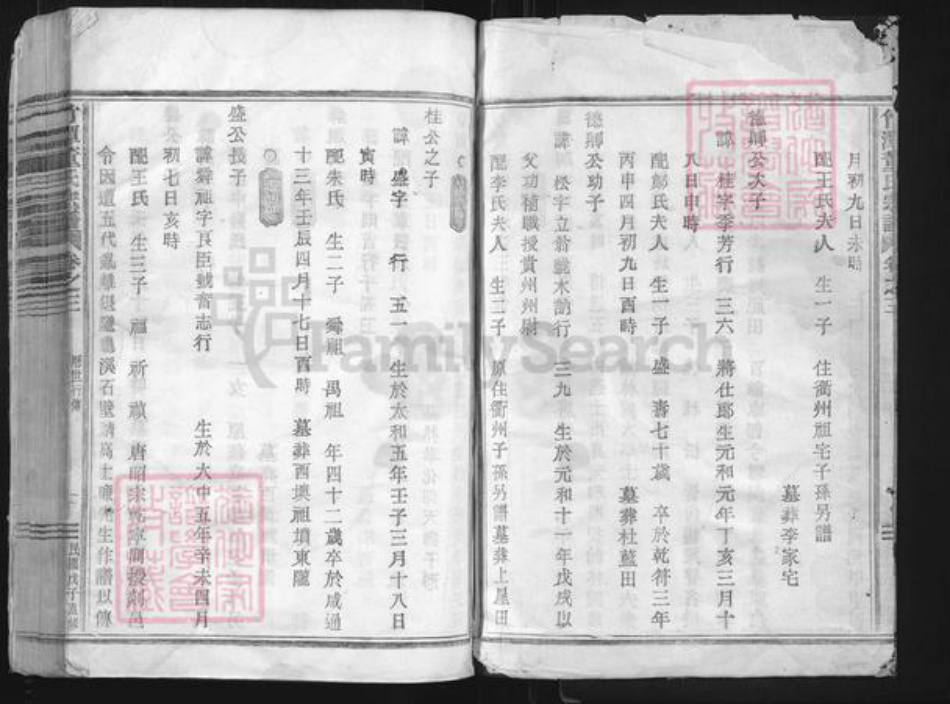 月初九日未時
配王氏夫人 生一子 住衢州祖宅子孫另譜
墓葬李家宅
德卿公次子
諱 桂字季芳行 三六 將仕郎生元和元年丁亥三月十
八日申時
配鄭氏夫人 生一子 盛 壽七十歲 卒於乾符三年
丙申四月初九日酉時 墓葬社藍田
德卿公幼子
諱 松字立 行 三九 生於元和十一年戊戌以
父功補職授貴州州尉
配李氏夫人 生二子 原住衢州子孫另譜墓葬上屋田
桂公之子
諱 盛字 行 五一 生於太和五年壬子三月十八日
寅時
配朱氏 生二子 舜祖 禹祖 年四十二歲卒於咸通
十三年壬辰四月十七日酉時 墓葬西塽祖墳東隴
盛公長子
諱舜祖字良臣號奮志行 生於大中五年辛未四月
初七日亥時
配王氏 生三子 福 祈 禎 唐昭宗
令因遭五代亂離退隱 溪石壁請高士 先生作譜以傳
卷之三
歷世行傳
民國戊子
FamilySearch